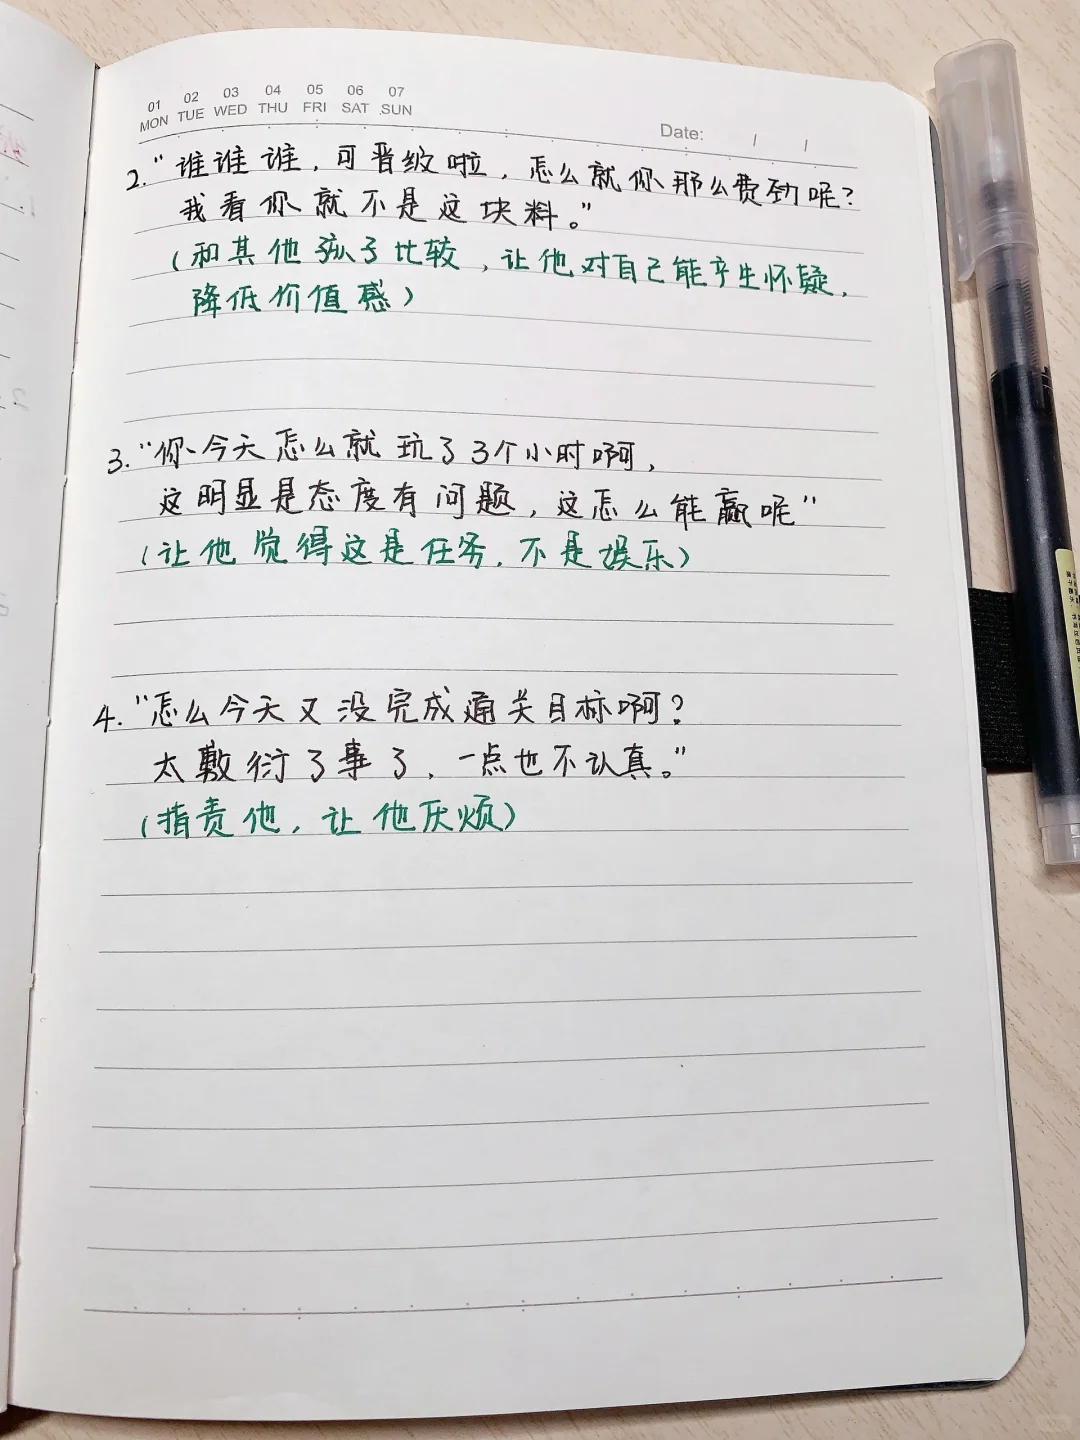 01 02 03 04 05 06 07
MON TUE WED THU FRI SAT SUN
Date: / /
2. “谁谁谁，可晋级啦，怎么就你那么费劲呢？
我看你就不是这块料。”
（和其他孩子比较，让他对自己能产生怀疑，
降低价值感）
3. “你今天怎么就玩了3个小时啊，
这明显是态度有问题，这怎么能赢呢”
（让他觉得这是任务，不是娱乐）
4. “怎么今天又没完成通关目标啊？
太敷衍了事了，一点也不认真。”
（指责他，让他厌烦）